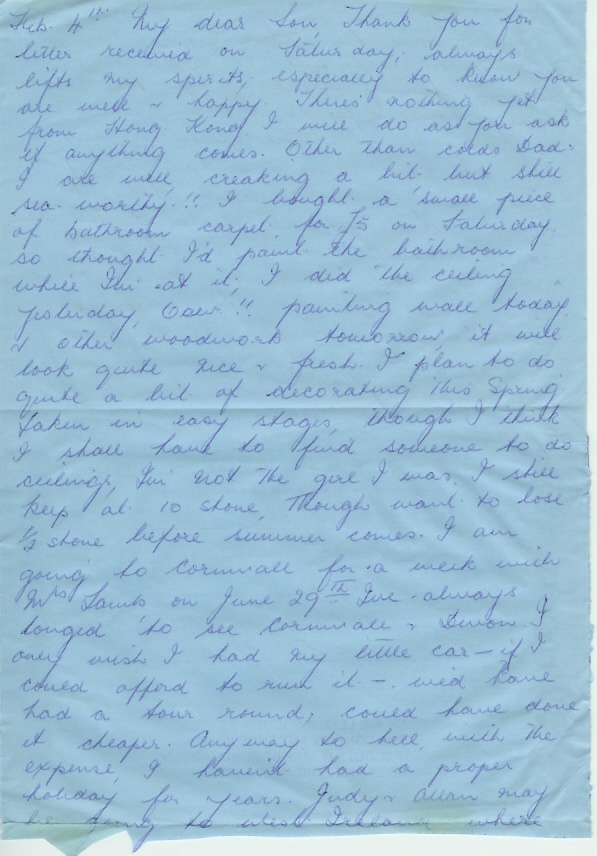 Feb. 4th My dear Son, Thank you for
letter received on Saturday, always
lifts my spirits, especially to know you
are well & happy. There's nothing yet
from Hong Kong I will do as you ask
if anything comes. Other than colds Dad &
I are well, creaking a bit but still
sea-worthy!! I bought a small piece
of bathroom carpet for £5 on Saturday
so thought I'd paint the bathroom
while I'm at it, I did the ceiling
yesterday, Oow!! painting wall today
& other woodwork tomorrow it will
look quite nice & fresh. I plan to do
quite a bit of decorating this Spring
taken in easy stages, though I think
I shall have to find someone to do
ceilings, I'm not the girl I was. I still
keep at 10 stone, Though want to lose
1/2 stone before summer comes. I am
going to Cornwall for a week with
Mrs Lamb on June 29th I've always
longed to see Cornwall & Devon. I
only wish I had my little car – if I
could afford to run it – we'd have
had a tour round, could have done
it cheaper. Anyway to hell, with the
expense, I haven't had a proper
holiday for years. Judy & Allan may
be going to West Ireland where